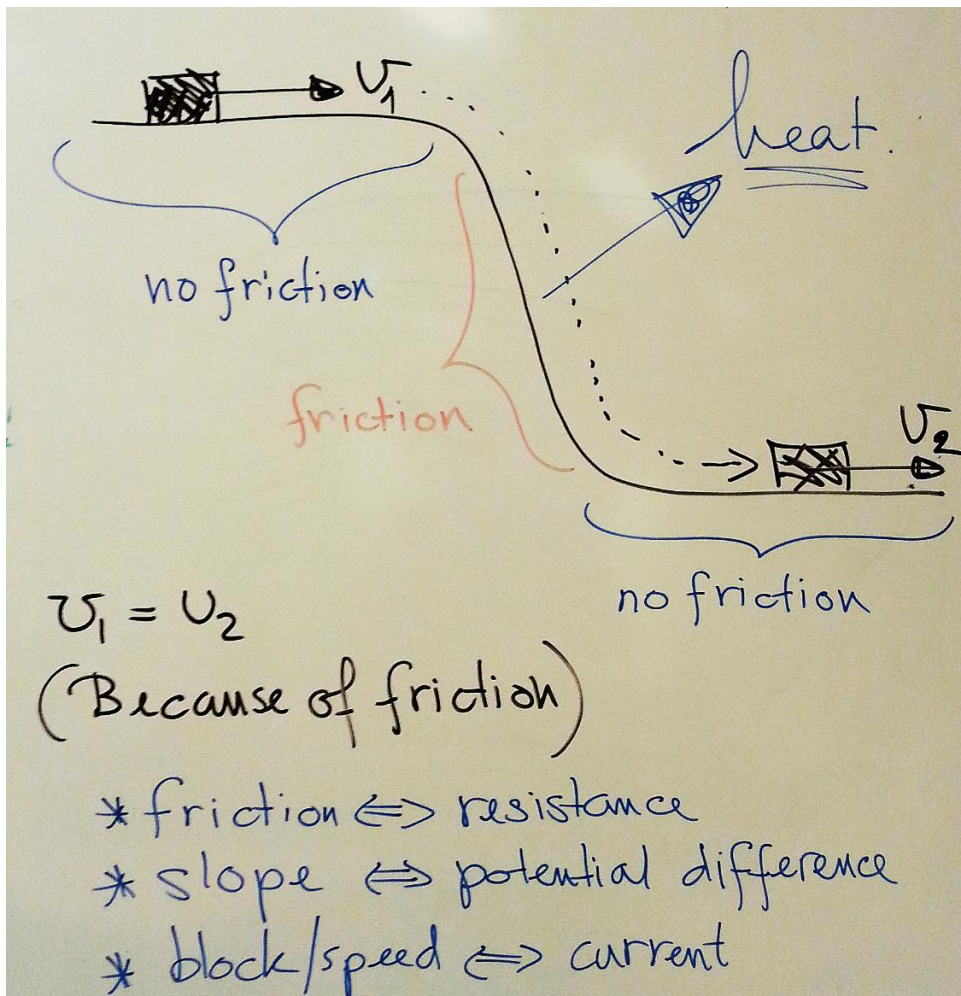 υ₁
heat.
no friction
friction
υ₂
no friction
υ₁ = υ₂
(Because of friction)
* friction ⇔ resistance
* slope ⇔ potential difference
* block/speed ⇔ current